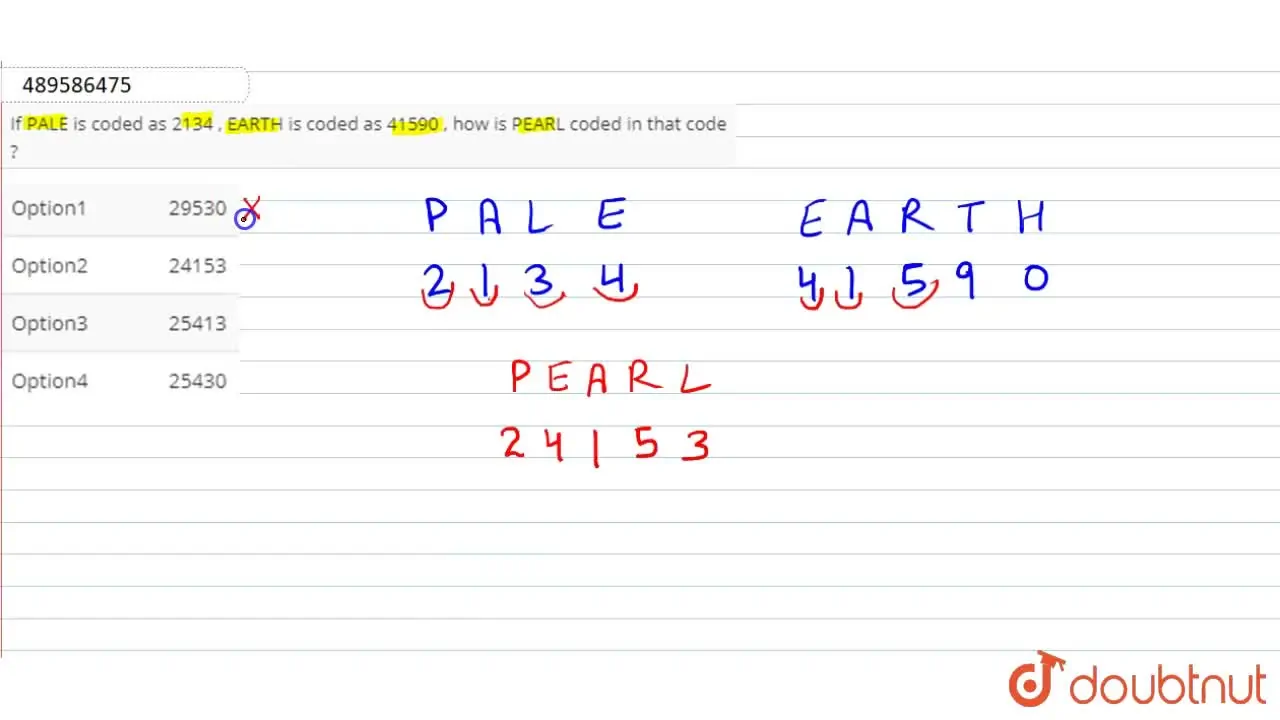 489586475
If PALE is coded as 2134 , EARTH is coded as 41590 , how is PEARL coded in that code
?
Option1 29530 X
Option2 24153
Option3 25413
Option4 25430
P A L E
2 1 3 4
E A R T H
4 1 5 9 0
P E A R L
2 4 1 5 3
doubtnut